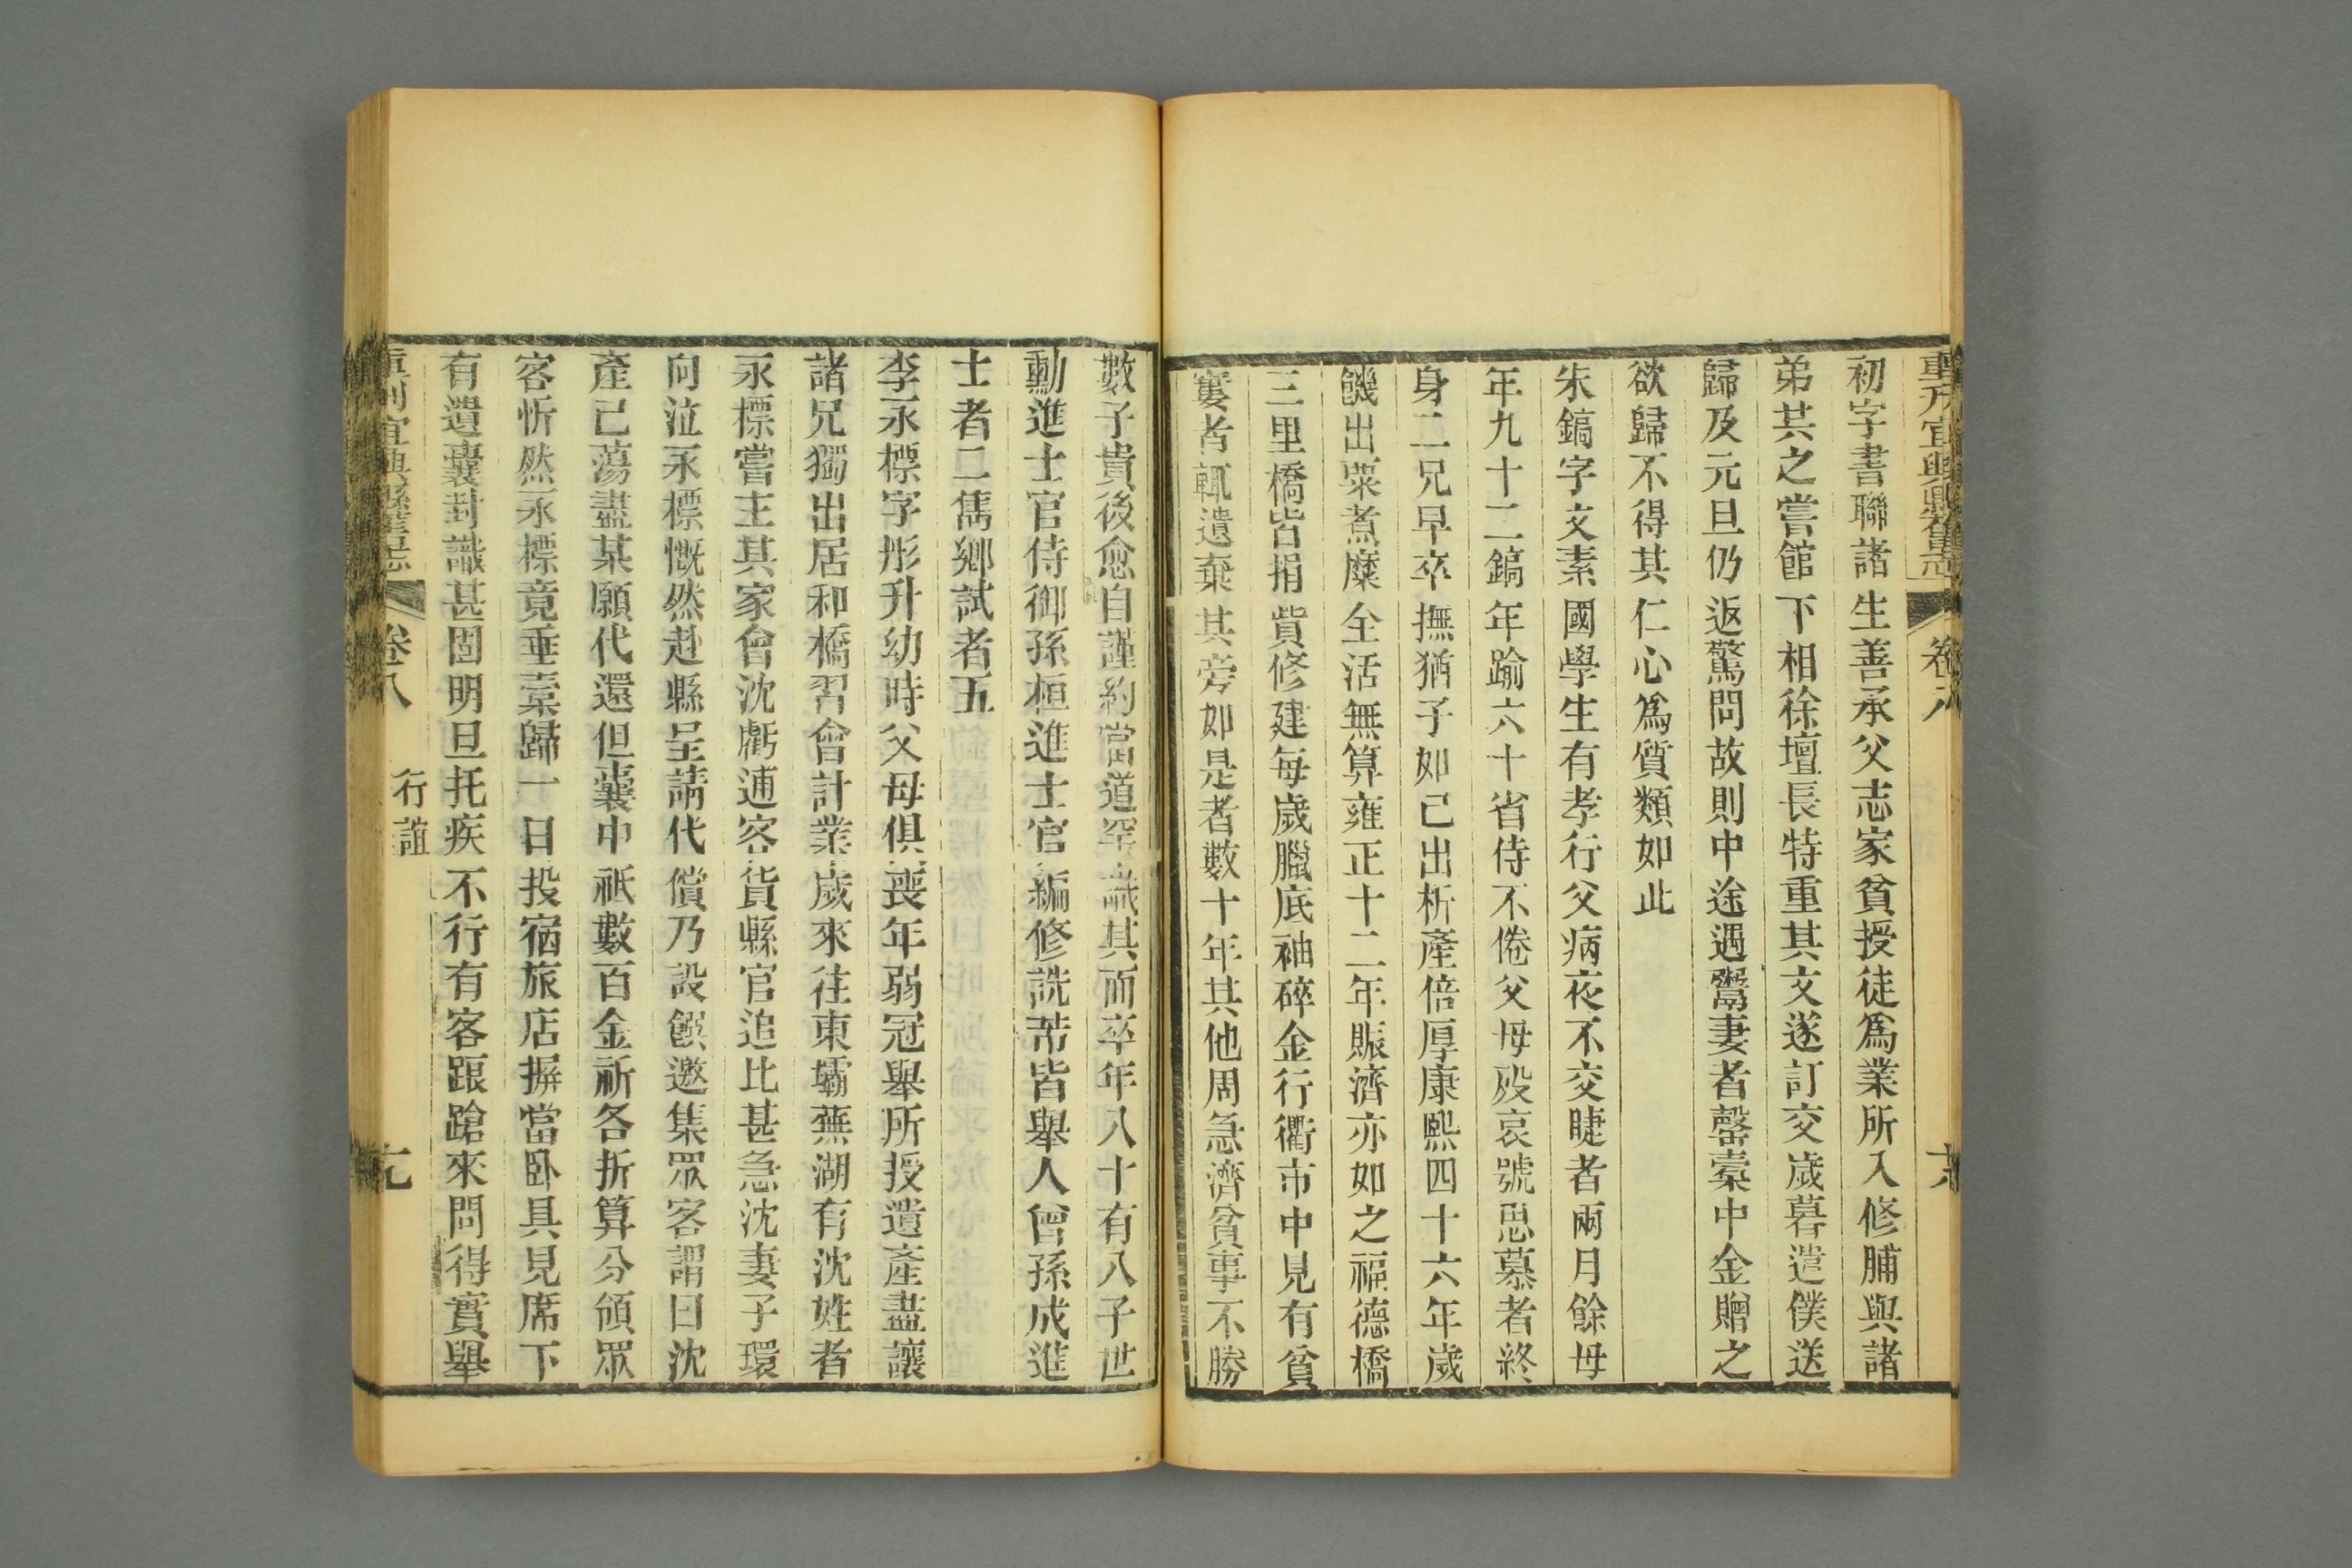 重刋宜興縣舊志
卷八
初字書聯諸生善承父志家貧授徒爲業所入修脯與諸
弟共之嘗館下相徐壇長特重其文遂訂交歲暮遣僕送
歸及元旦仍返驚問故則中途遇鬻妻者罄橐中金贈之
欲歸不得其仁心爲質類如此
朱鎬字文素國學生有孝行父病夜不交睫者兩月餘母
年九十二鎬年踰六十省侍不倦父母歿哀號思慕者終
身二兄早卒撫猶子如己出析產倍厚康熙四十六年歲
饑出粟煮糜全活無算雍正十二年賑濟亦如之福德橋
三里橋皆捐貲修建每歲臘底袖碎金行衢市中見有貧
寠者輒遺棄其旁如是者數十年其他周急濟貧事不勝
數子貴後愈自謹約當道罕識其面卒年八十有八子世
勳進士官侍御孫桓進士官編修詵芾皆舉人曾孫成進
士者二雋鄉試者五
李永標字彤升幼時父母俱喪年弱冠舉所授遺產盡讓
諸兄獨出居和橋習會計業歲來往東壩蕪湖有沈姓者
永標嘗主其家會沈虧逋客貨縣官追比甚急沈妻子環
向泣永標慨然赴縣呈請代償乃設饌邀集眾客謂曰沈
產已蕩盡某願代還但囊中祇數百金祈各折算分領眾
客忻然永標竟垂橐歸一日投宿旅店摒當卧具見席下
有遺囊封識甚固明旦托疾不行有客踉蹌來問得實舉
重刋宜興縣舊志
卷八
行誼